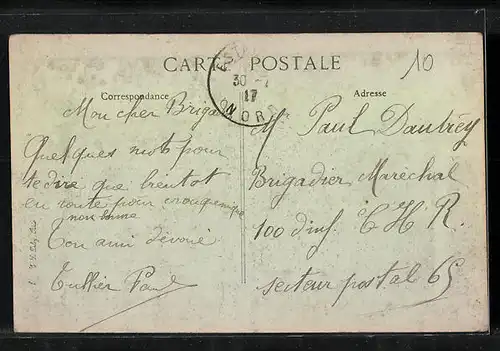 CARTE POSTALE
10
30 - 7
17
Correspondance
Adresse
Mon cher Brigad
Quelques mots pour
te dire que bientot
en route pour
non
Ton ami dévoué
Tullier Paul
M Paul Dautrey
Brigadier Maréchal
100 d'inf. C H R.
secteur postal 65